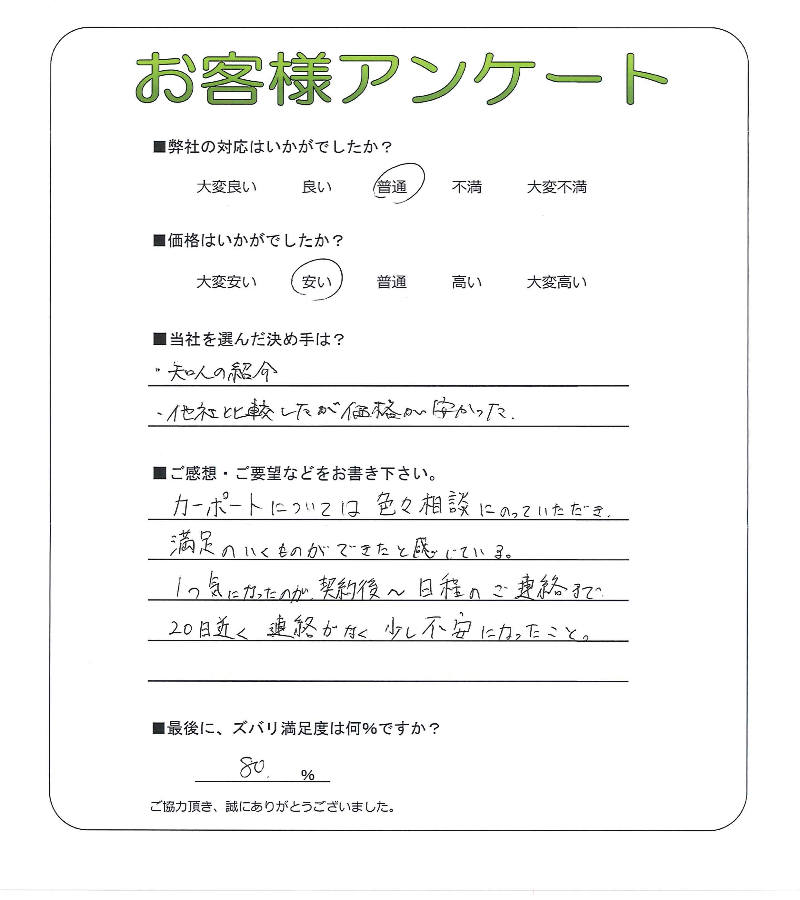 お客様アンケート
■弊社の対応はいかがでしたか？
大変良い 良い 普通 不満 大変不満
■価格はいかがでしたか？
大変安い 安い 普通 高い 大変高い
■当社を選んだ決め手は？
・知人の紹介
・他社と比較したが価格が安かった.
■ご感想・ご要望などをお書き下さい。
カーポートについては色々相談にのっていただき.
満足のいくものができたと感じている。
1つ気になったのが、契約後～日程のご連絡まで
20日近く連絡がなく少し不安になったこと。
■最後に、ズバリ満足度は何%ですか？
80. %
ご協力頂き、誠にありがとうございました。